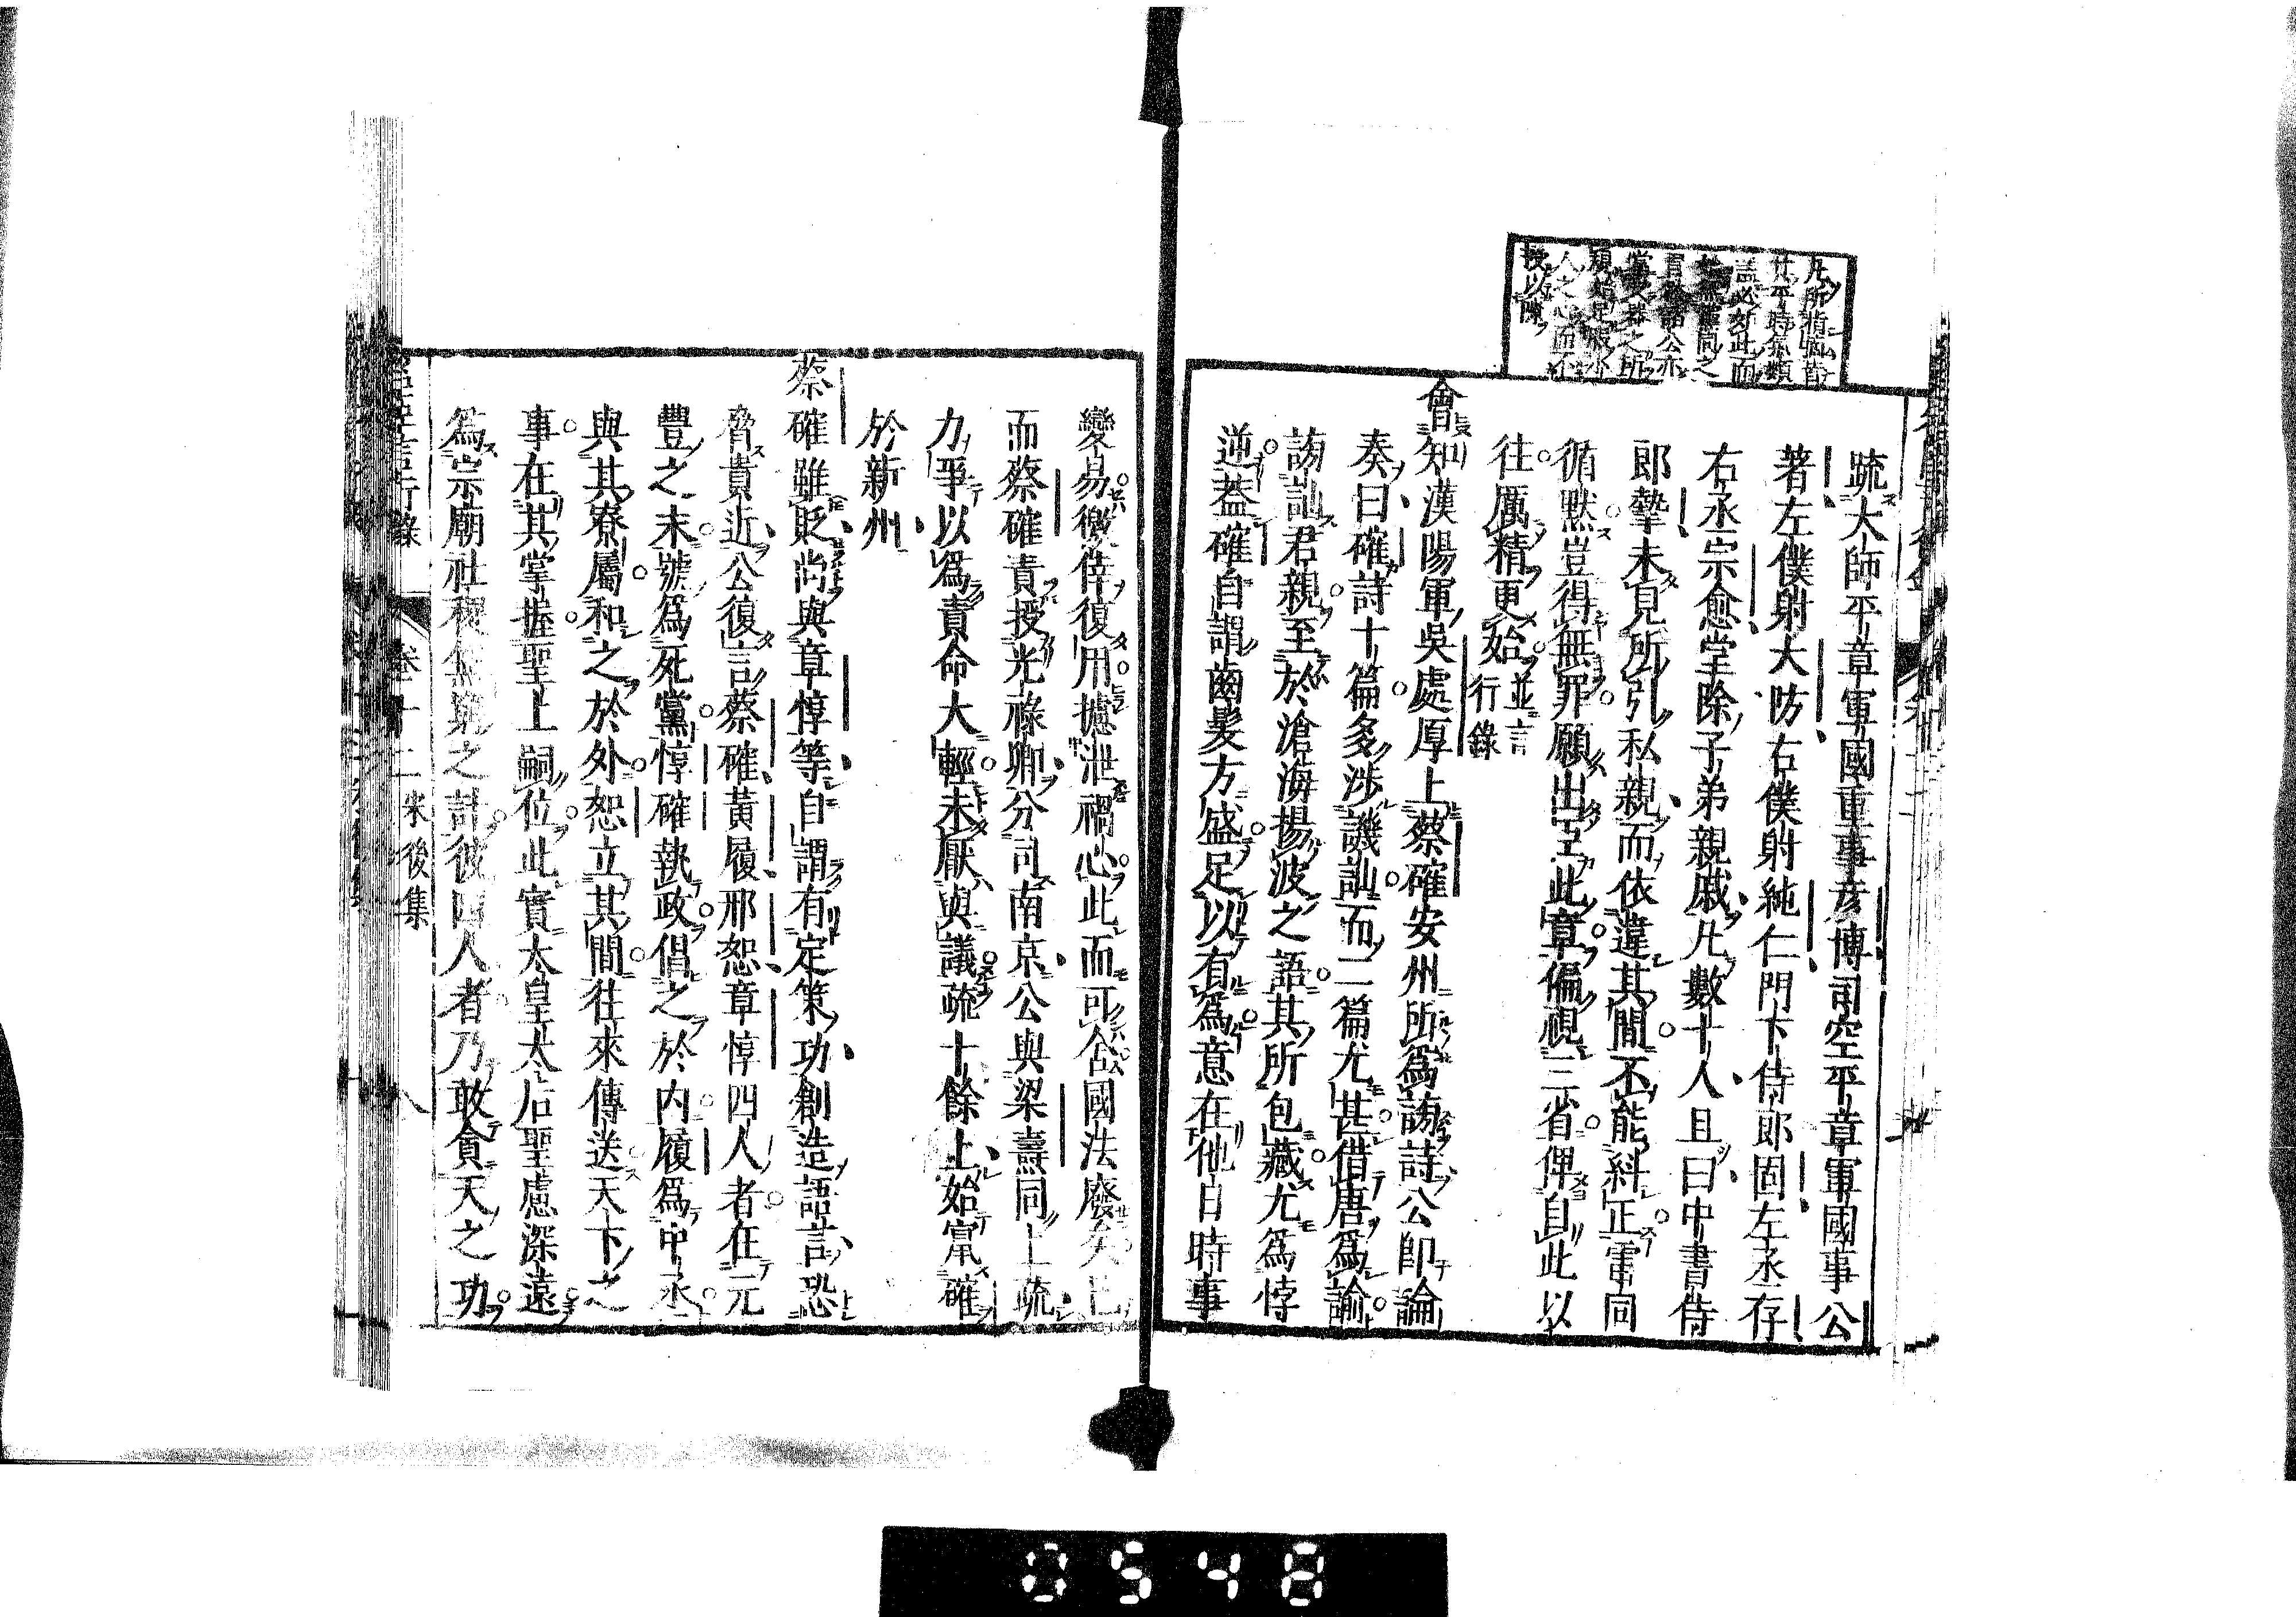 凡所指摘皆
其平時無類
益必於此而
之
公亦
之所
願
人之心而不
投以隙
疏大師平章軍國重事彦博司空平章軍國事公
著左僕射大防右僕射純仁門下侍郎固左丞存
右丞宗愈堂除子弟親戚凡數十人且曰中書侍
郎摯未見所引私親而依違其間不能糾正雷同
循默豈得無罪願出臣此章偏視三省俾自此以
往厲精更始並言行錄
會知漢陽軍吳處厚上蔡確安州所爲謗詩公即論
奏曰確詩十篇多涉譏訕而二篇尤甚借唐爲諭
謗訕君親至於滄海揚波之語其所包藏尤爲悖
逆葢確自謂齒髮方盛足以有爲意在他日時事
變易徼倖復用攄泄禍心此而可舍國法廢矣巳
而蔡確責授光祿卿分司南京公與梁燾同上疏
力爭以爲責命大輕未厭與議疏十餘上始竄確
於新州
蔡確雖貶尚與章惇等自謂有定策功創造語言恐
脅貴近公復言蔡確黃履邢恕章惇四人者在元
豐之末號爲死黨惇確執政倡之於内履爲中丞
與其寮屬和之於外恕立其間往來傳送天下之
事在其掌握聖上嗣位此實太皇太后聖慮深遠
爲宗廟社稷無窮之計彼四人者乃敢貪天之功
言行錄 卷十二 宋後集 八
0548